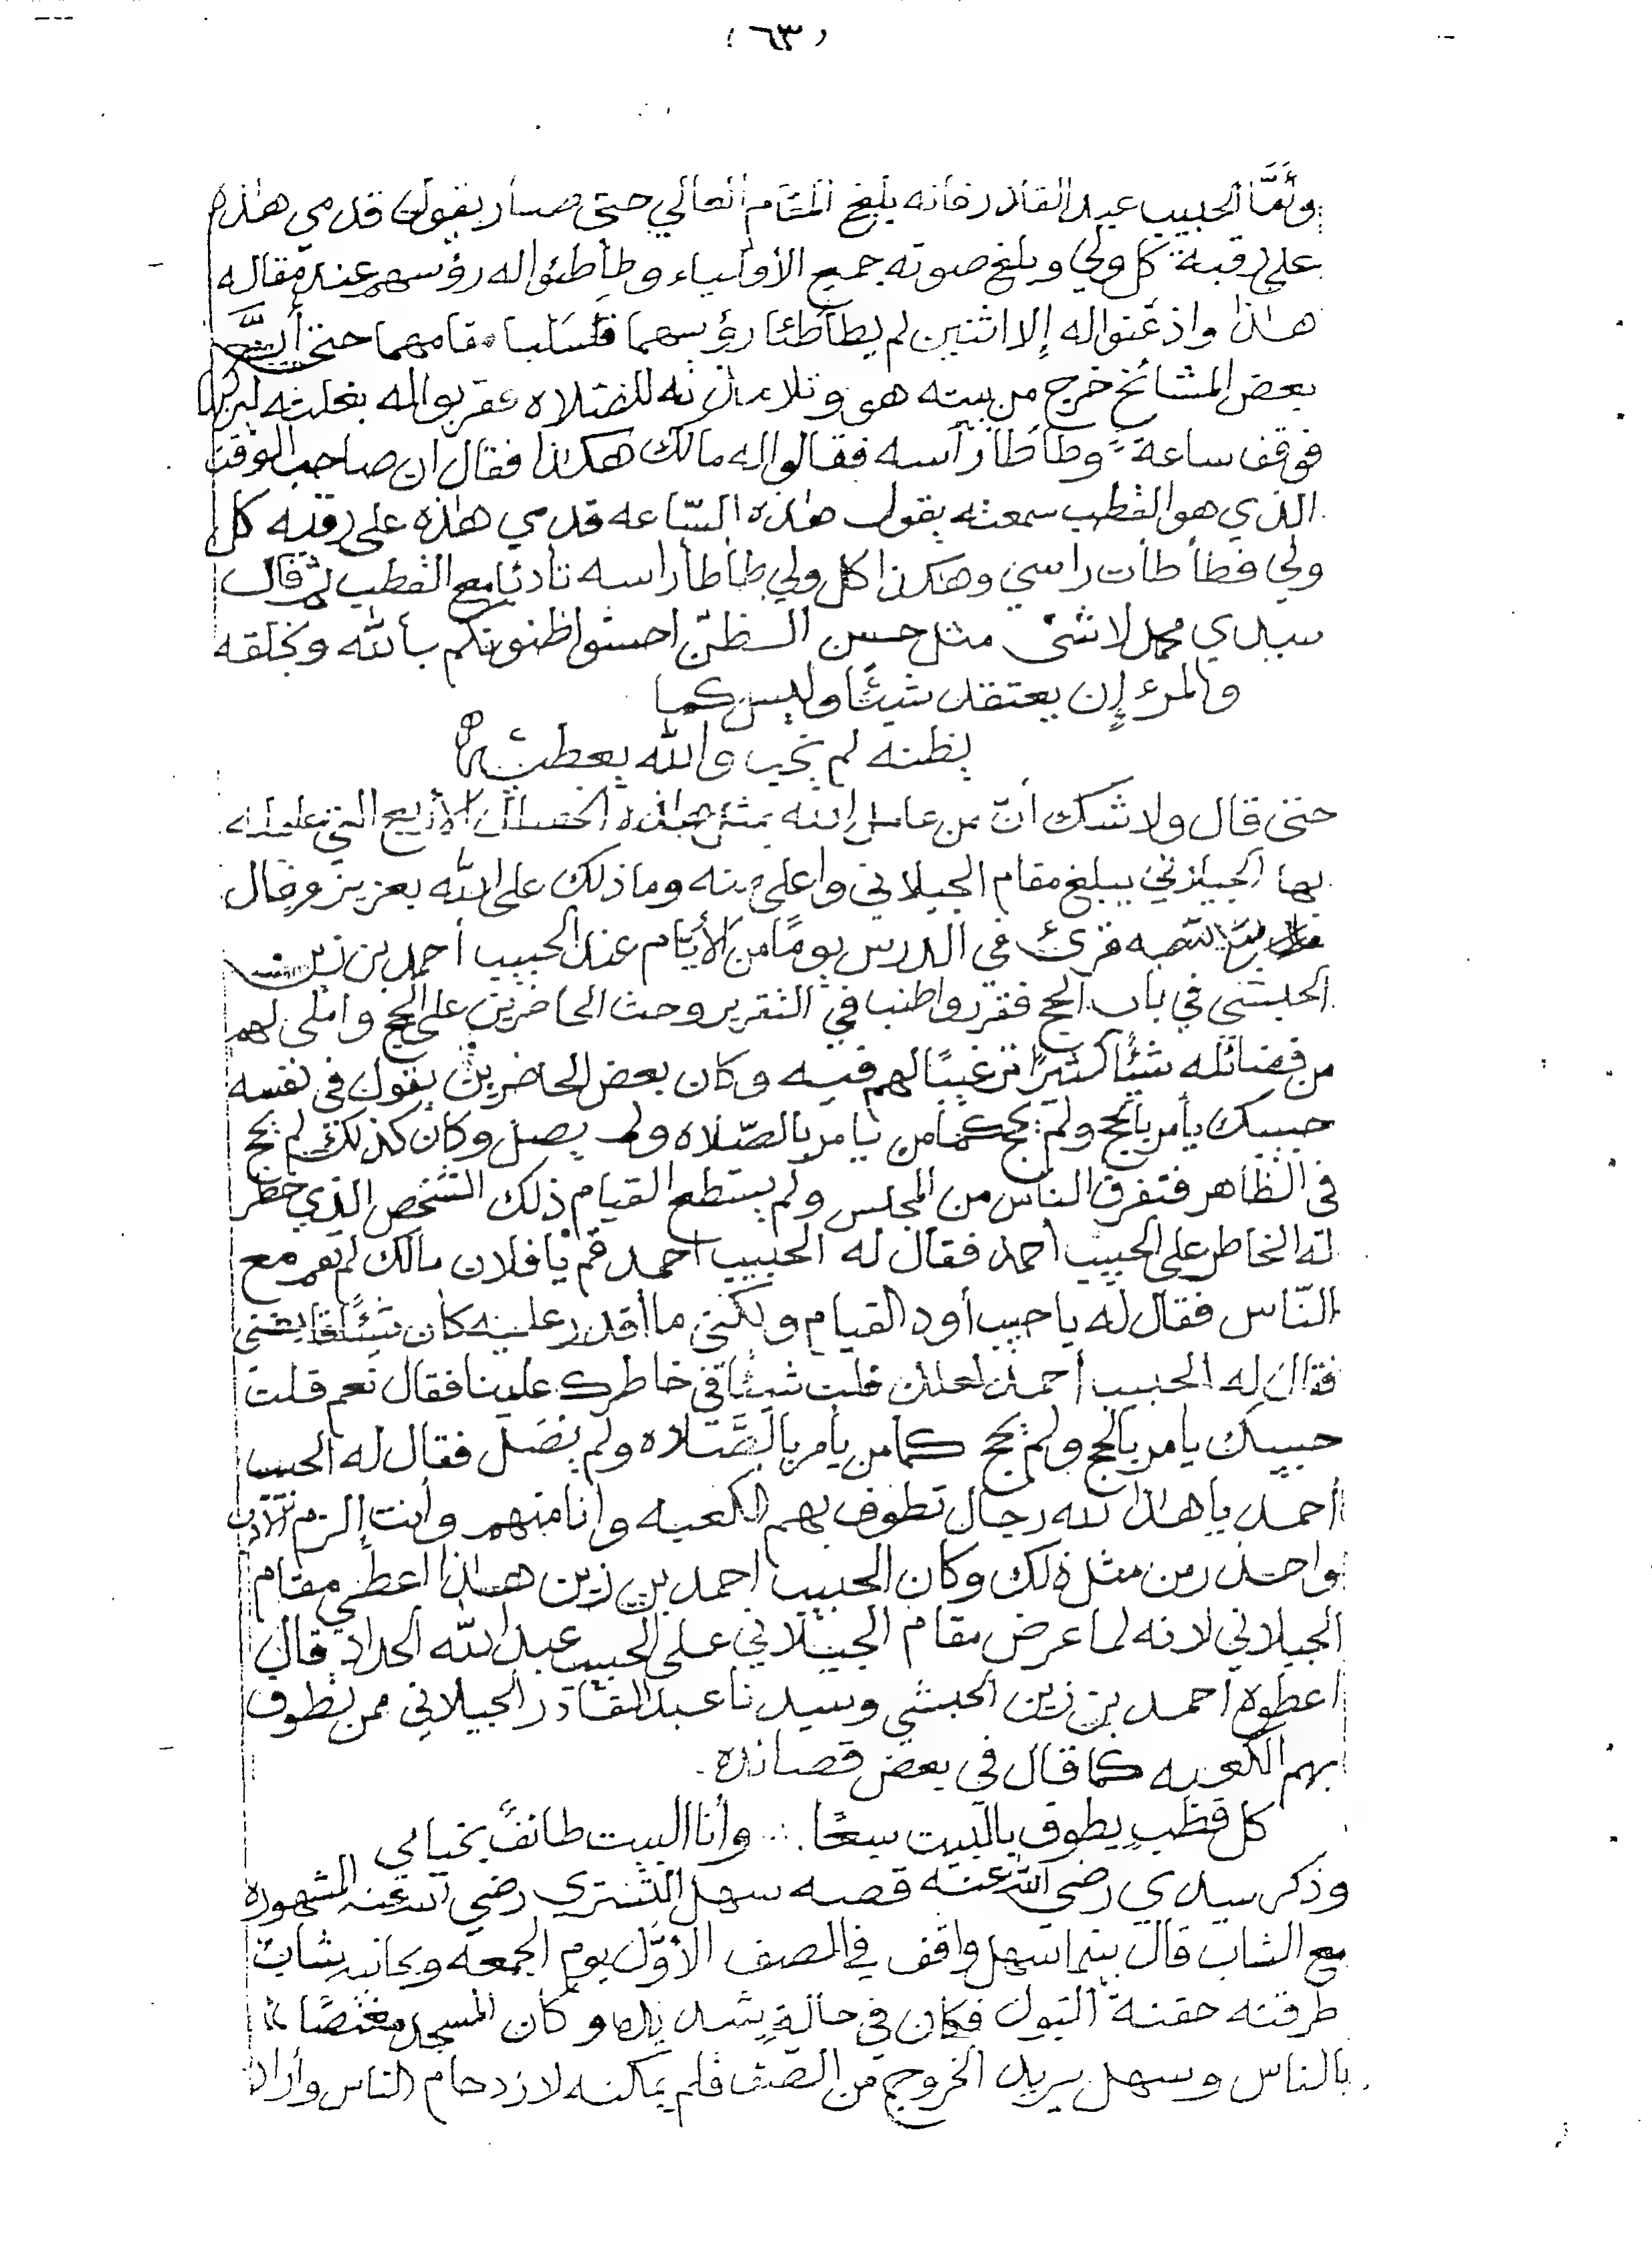 (٦٣)
وأمَّا الحبيب عبد القادر فانه بلغ المقام العالي حتى صار يقول قدمي هذه
على رقبة كل ولي وبلغ صوته جميع الأولياء وطأطئوا له رؤسهم عند مقاله
هذا واذعنوا له إلا اثنين لم يطأطئا رؤسهما فسلبا مقامهما حتى أن
بعض المشائخ خرج من بيته هو وتلامذته للصلاه فقربوا له بغلته ليركبها
فوقف ساعة وطأطأ رأسه فقالوا له مالك هكذا فقال ان صاحب الوقت
الذي هو القطب سمعته يقول هذه السّاعه قدمي هذه على رقبه كل
ولي فطأطأت راسي وهكذا كل ولي طأطأ راسه تأدبًا مع القطب ثم قال
سيدي محمد لا شئ مثل حسن الظنّ احسنوا ظنونكم بالله وبخلقه
والمرء إن يعتقد شيئًا وليس كما
يظنه لم يخب والله يعطيه
حتى قال ولا شك أنّ من عامل الله بمثل هذه الخصال الأربع التي عامله
بها الجيلاني يبلغ مقام الجيلاني واعلى منه وما ذلك على الله بعزيز وقال
قرئ في الدرس يومًا من الأيّام عند الحبيب أحمد بن زين
الحبشي في باب الحج فقرر واطنب في التقرير وحث الحاضرين على الحج واملى لهم
من فضائله شيئًا كثيرًا ترغيبًا لهم فيه وكان بعض الحاضرين يقول في نفسه
حبيبك يأمر بالحج ولم يحج كما من يامر بالصّلاه ولم يصل وكان كذلك لم يحج
في الظاهر فتفرق الناس من المجلس ولم يستطع القيام ذلك الشخص الذي خطر
له الخاطر على الحبيب أحمد فقال له الحبيب احمد قم يا فلان مالك لم تقم مع
النّاس فقال له يا حبيب أود القيام ولكني ما أقدر عليه كأن شيئًا قابضني
فقال له الحبيب أحمد لعلك قلت شيئًا في خاطرك علينا فقال نعم قلت
حبيبك يامر بالحج ولم يحج كما من يأمر بالصَّلاه ولم يصَل فقال له الحبيب
أحمد يا هذا لله رجال تطوف بهم الكعبه وانا منهم وأنت إلزم الأدب
واحذر من مثل ذلك وكان الحبيب احمد بن زين هذا اعطي مقام
الجيلاني لانه لما عرض مقام الجيلاني على الحبيب عبد الله الحداد قال
اعطوه احمد بن زين الحبشي وسيدنا عبد القادر الجيلاني ممن تطوف
بهم الكعبه كما قال في بعض قصائده.
كل قطبٍ يطوف بالبيت سبعًا ∴ وأنا البيت طائفً بخيامي
وذكر سيدي رضي الله عنه قصه سهل التستري رضي الله عنه المشهوره
مع الشاب قال بينما سهل واقف في الصف الأوّل يوم الجمعه وبجانبه شابٌ
طرقته حقنة البول فكان في حالةٍ شديده وكان المسجد مغتصًا
بالناس وسهل يريد الخروج من الصف فلم يمكنه لازدحام الناس وأراد